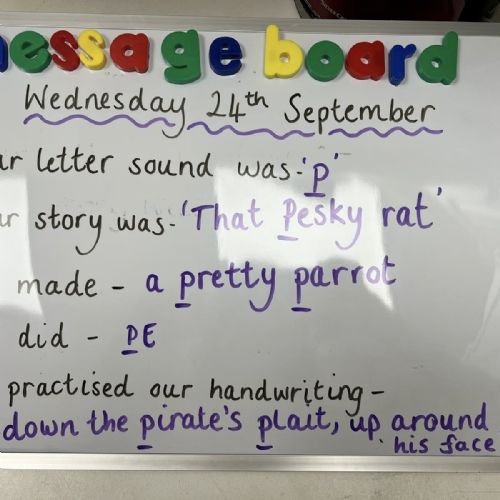 essage board
Wednesday 24th September
ur letter sound was - 'p'
ur story was - 'That Pesky rat'
made - a pretty parrot
did - PE
practised our handwriting -
down the pirate's plait, up around
his face